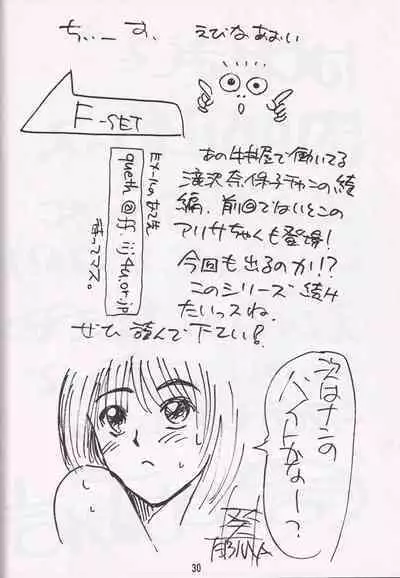 ちぃーす、
えびなあおい
F-SET
Eメールのあて先
queth@ff.iij4u.or.jp
待ってマス。
あの牛丼屋で働いてる
滝沢奈保子チャンの続
編、前回ではいとこの
アリサちゃんも登場！
今回も出るのか！？
このシリーズ続み
たいっスね、
ぜひ読んで下さい！
次はナニの
バイトかなー？
EBINA
30